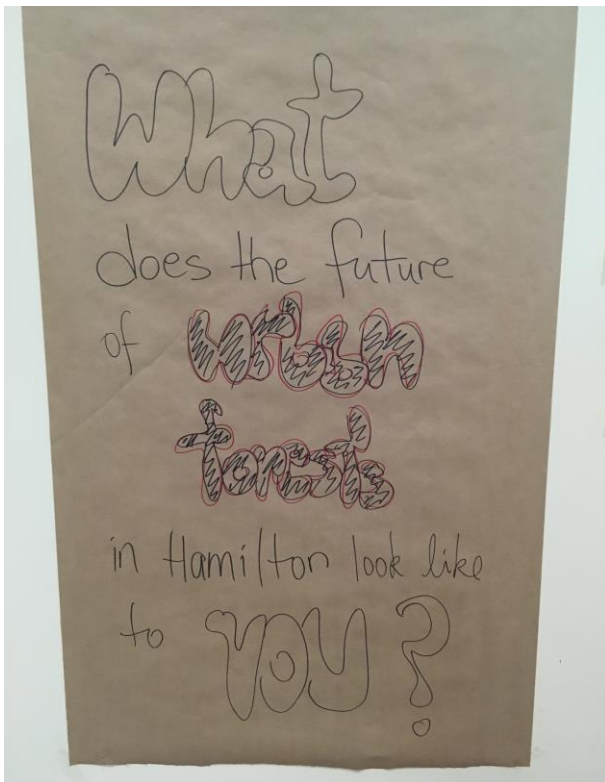 What
does the future
of urban
forests
in Hamilton look like
to YOU?